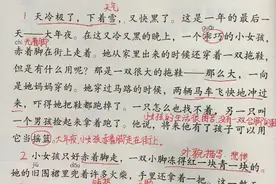 天气
1 天冷极了，下着雪，又快黑了。这是一年的最后一
天——大年夜。在这又冷又黑的晚上，一个乖巧的小女孩，
赤着脚在街上走着。她从家里出来的时候还穿着一双拖鞋，
但是有什么用呢？那是一双很大的拖鞋——那么大，一向
是她妈妈穿的。她穿过马路的时候，两辆马车飞快地冲过
来，吓得她把鞋都跑掉了。一只怎么也找不着，另一只叫
一个男孩捡起来拿着跑了。他说，将来他有了孩子可以拿
它当摇篮。大年夜小女孩赤着脚走在街上。
外貌描写
2 小女孩只好赤着脚走，一双小脚冻得红一块青一块的。
她的旧围裙里兜着许多火柴，手里还拿着一把。这一